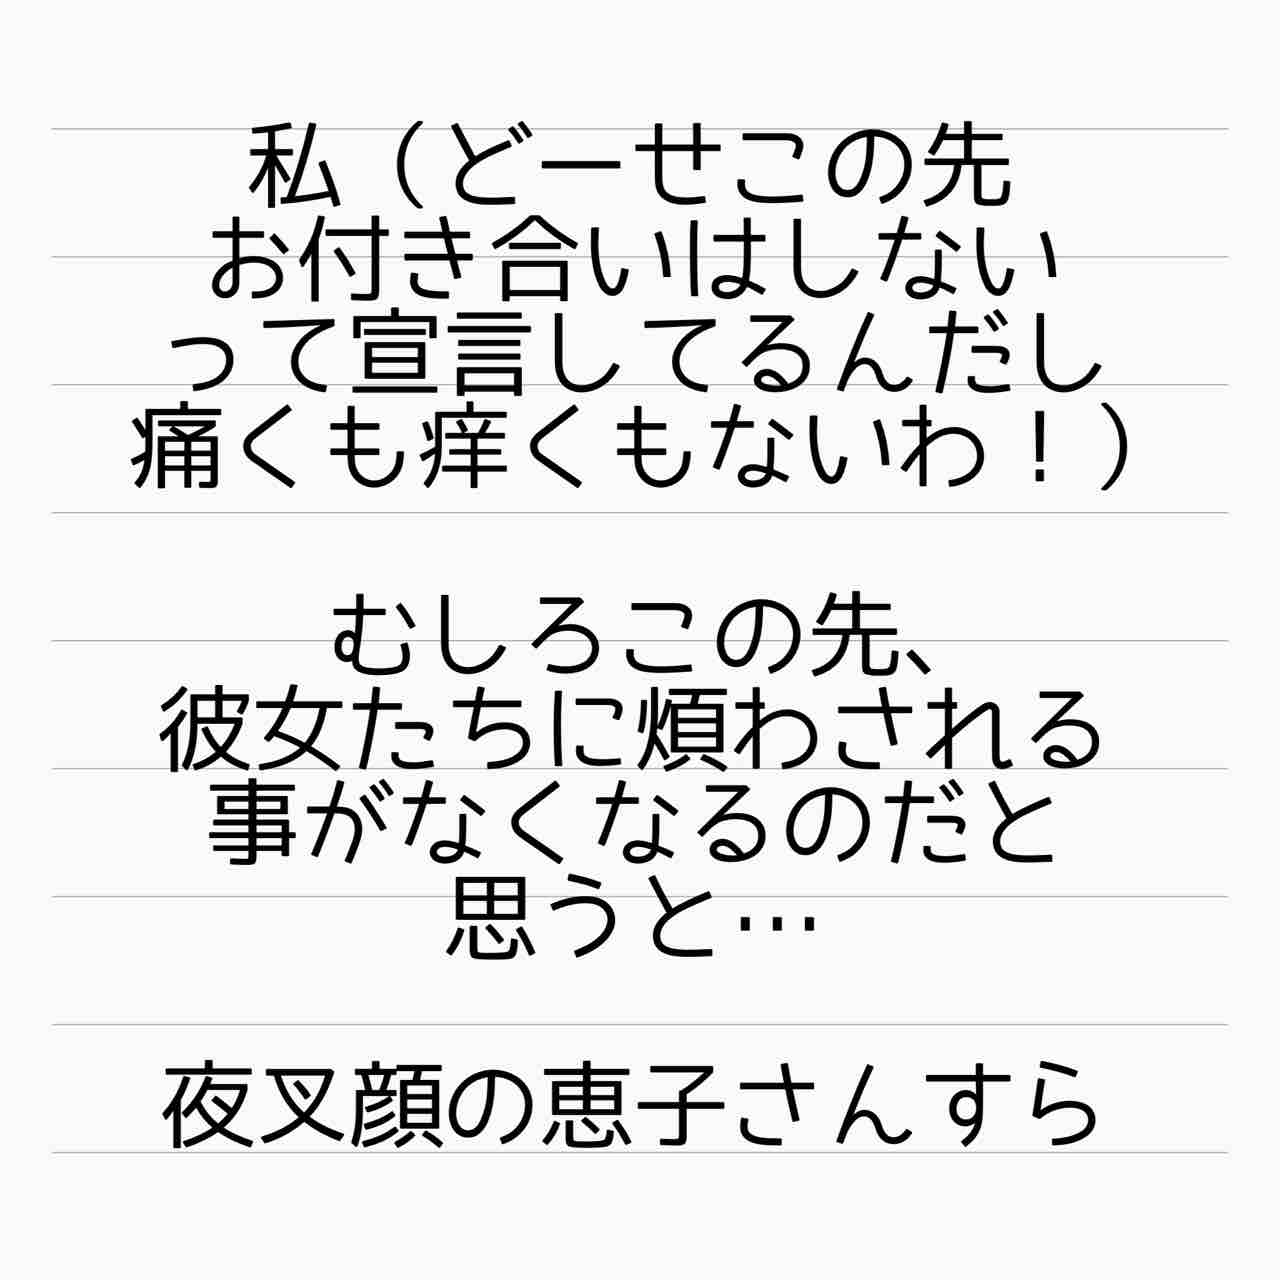 私（どーせこの先
お付き合いはしない
って宣言してるんだし
痛くも痒くもないわ！）
むしろこの先、
彼女たちに煩わされる
事がなくなるのだと
思うと…
夜叉顔の恵子さんすら